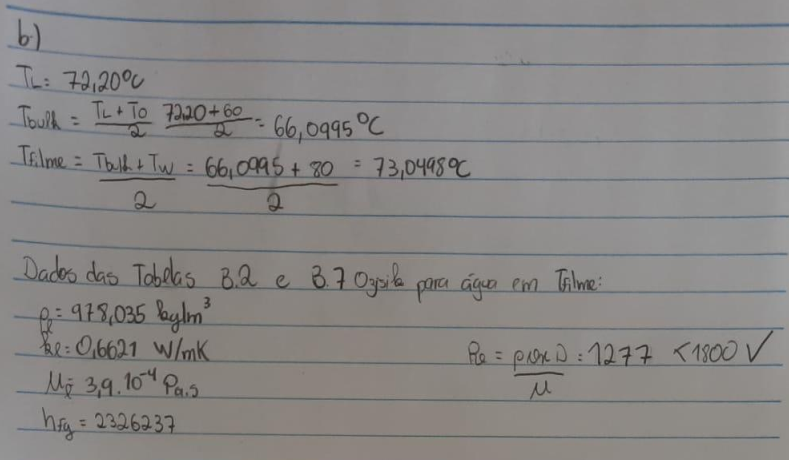 b)
TL = 72,20°C
Tbulk = (TL + T0)/2 (72,20 + 60)/2 = 66,0995°C
Tfilme = (Tbulk + Tw)/2 = (66,0995 + 80)/2 = 73,0498°C
Dados das Tabelas B.2 e B.7 Ozisik para água em Tfilme:
ρl = 978,035 kg/m³
kl = 0,6621 W/mK
Re = ρ D/μ = 1277 < 1800 ✓
μl = 3,9.10⁻⁴ Pa.s
hfg = 2326237